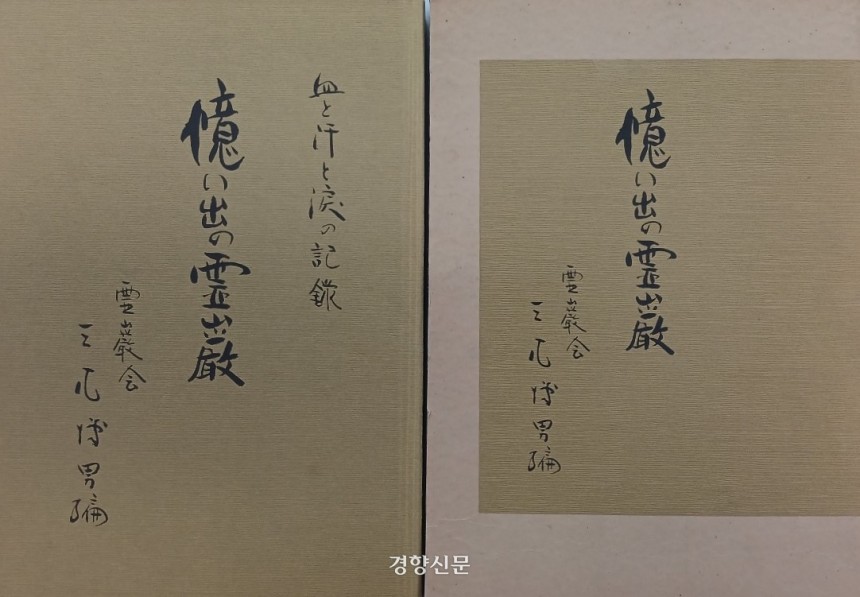 血と汗と涙の記録
憶い出の霊巌
霊巌会
三 博男編
憶い出の霊巌
霊巌会
三 博男編
경향신문